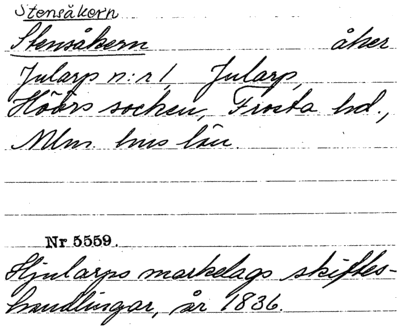 Stensåkern
Stensåkern åker
Jularp n:r 1 Jularp,
Höörs socken, Frosta hd.,
Mlm. hus län.
Nr 5559.
Hjularps markelags skiftes-
handlingar, år 1836.